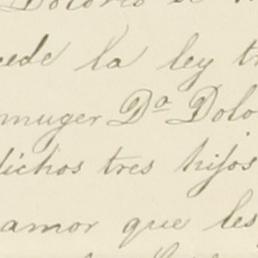 Dolorio de
cede la ley tr
muger Dª Dolo
dichos tres hijos
amor que les